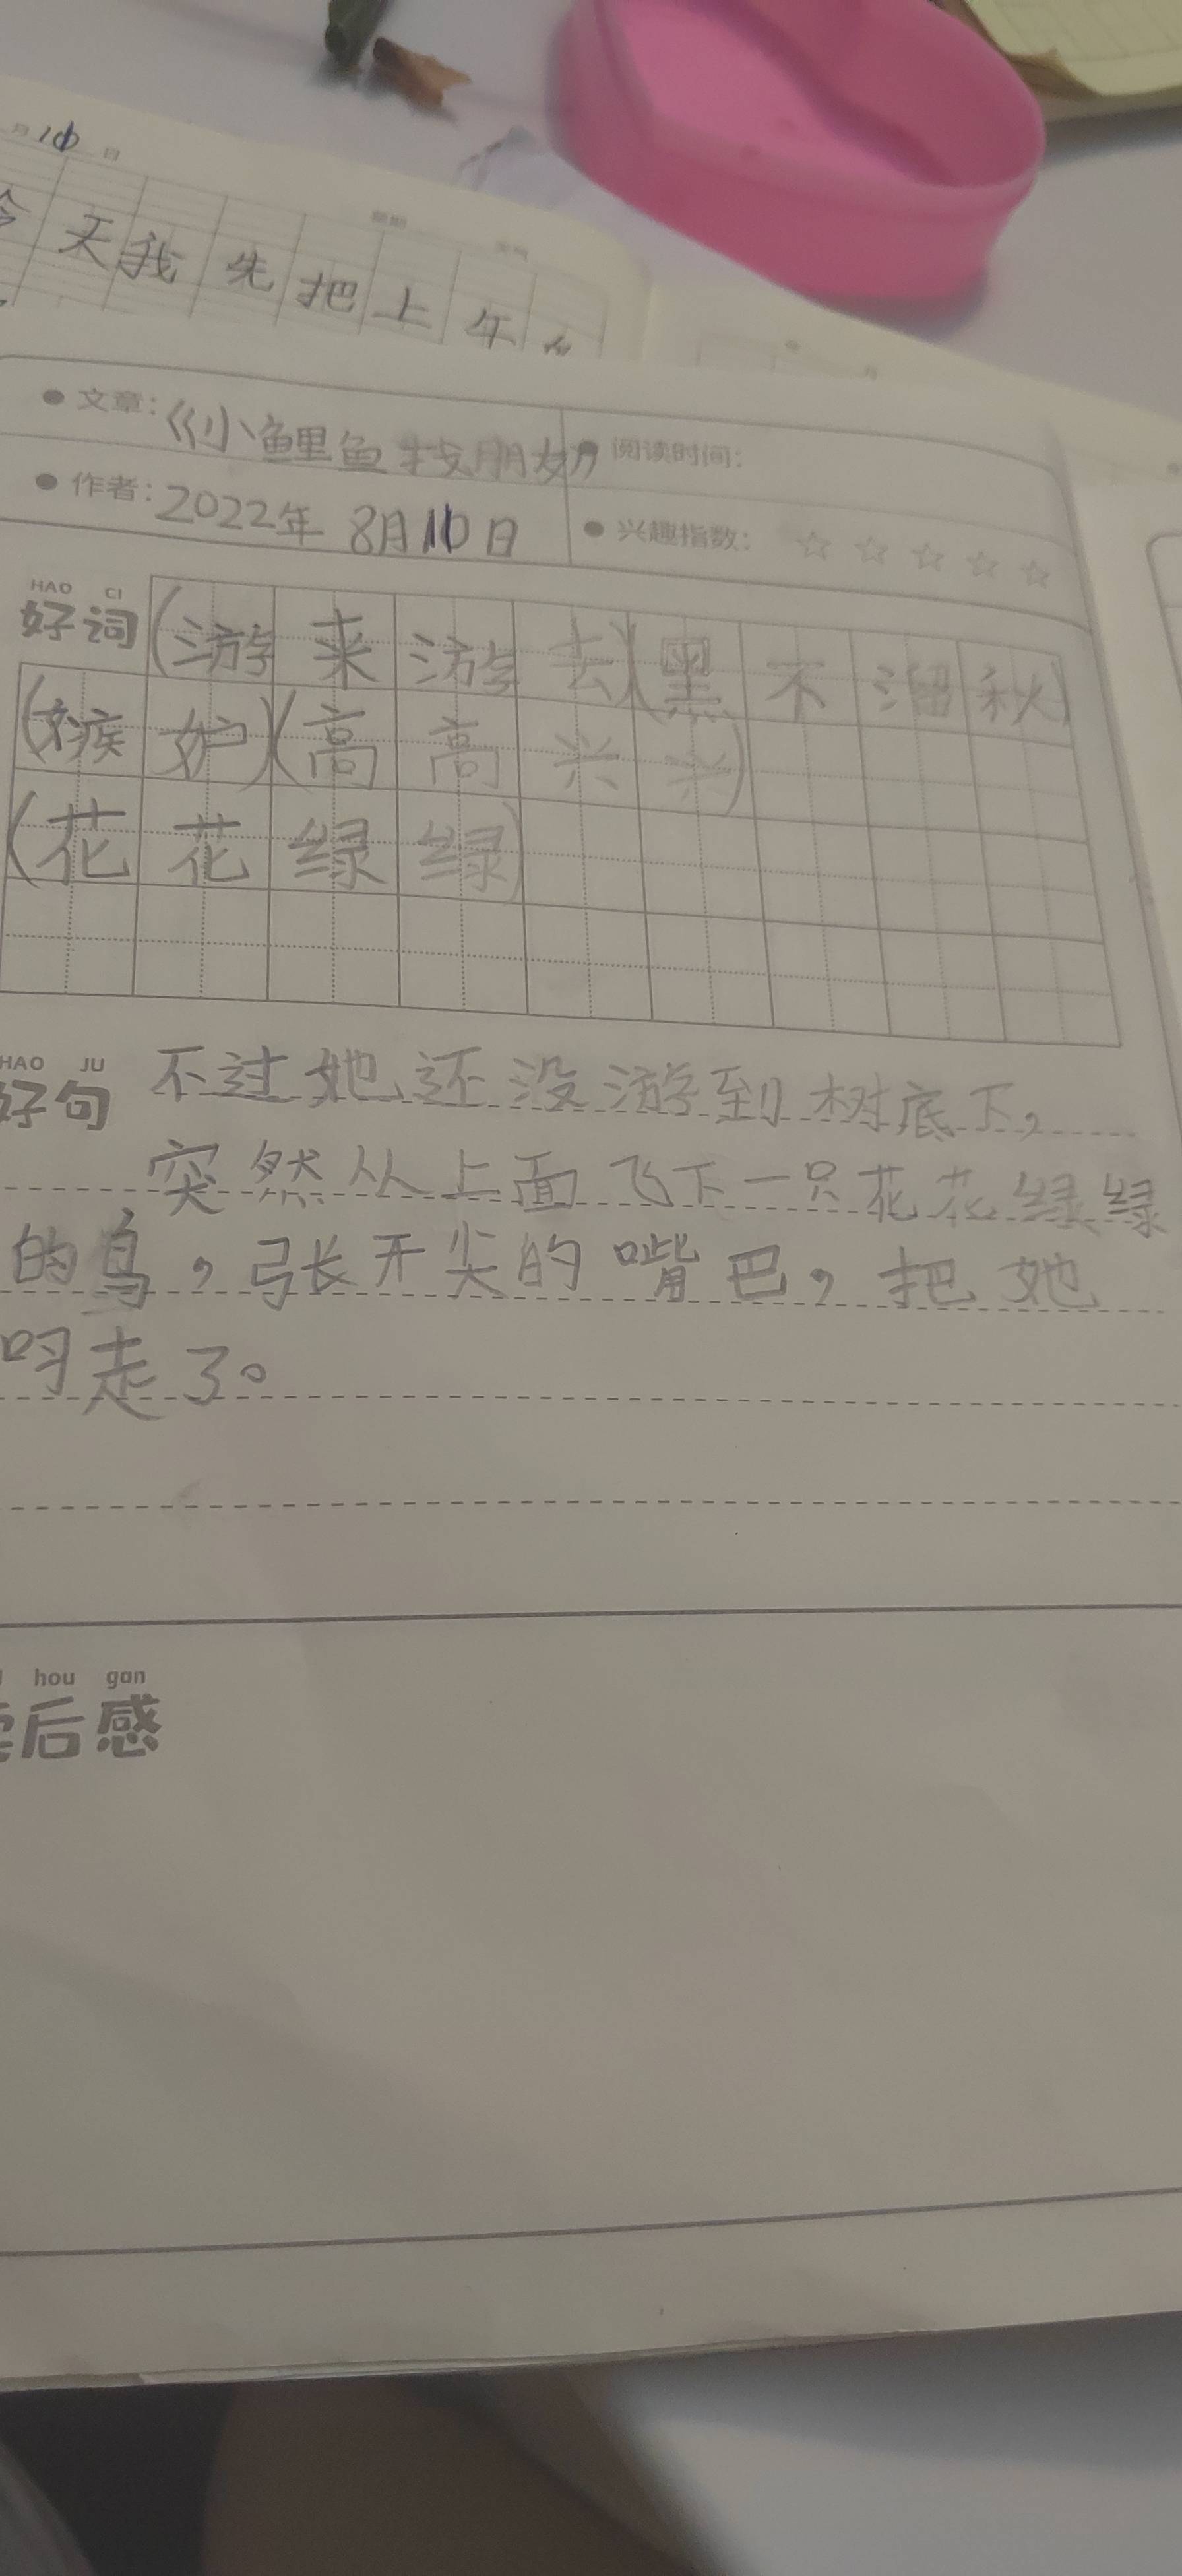 月 10 日
今天我先把上午
文章：《小鲤鱼找朋友》 阅读时间：
作者：2022年 8月10日 兴趣指数：☆☆☆☆☆
HAO CI
好词 (游来游去)(黑不溜秋)
(嫉妒)(高高兴兴)
(花花绿绿)
HAO JU
好句 不过她还没游到树底下，
突然从上面飞下一只花花绿绿
的鸟，张开尖的嘴巴，把她
叼走了。
hou gan
后感